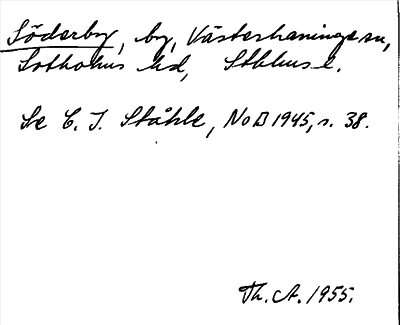 Söderby, by, Västerhaninge sn,
Sotholms hd, Sthlms l.
Se C. I. Ståhle, NoB 1945, s. 38.
Th. A. 1955.